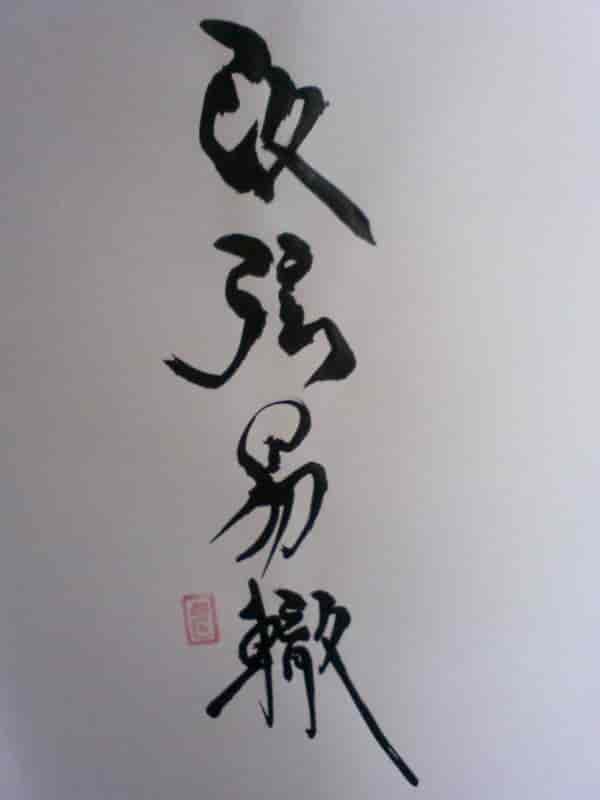 改弦易轍